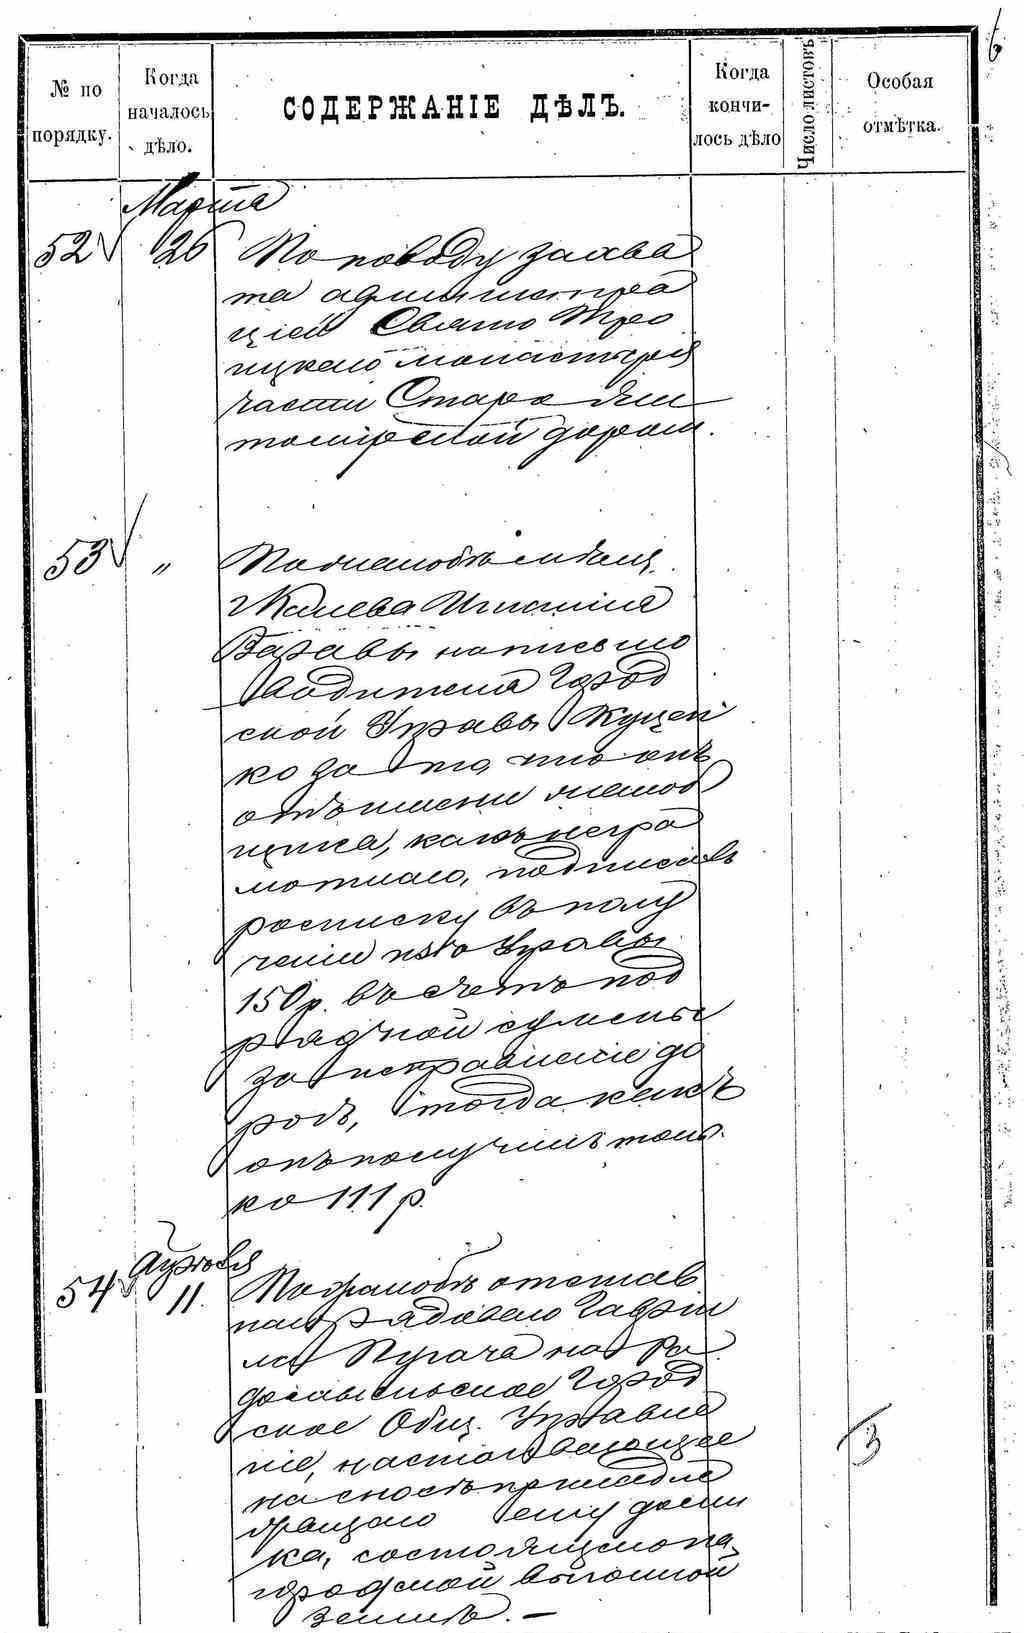 6
№ по порядку.
Когда началось дѣло.
СОДЕРЖАНІЕ ДѢЛЪ.
Когда кончилось дѣло
Число листовъ
Особая отмѣтка.
Марта
52 26 По поводу захва
та администра
ціей Свято Тро
ицкаго монастыря
части Старо Жи
томірской дороги.
53 " По жалобѣ
Игнатія
на письмо
водителя Город
ской Управы Куцен
ко за то, что онъ
отъ имени
щика, какъ негра
мотнаго, подписалъ
росписку въ полу
ченіи изъ Управы
150 р. въ счетъ под
рядной суммы
за исправленіе до
рогъ, тогда какъ
онъ получилъ толь
ко 111 р.
54 11. По жалобѣ отстав
наго рядоваго Гаврі
ла Пугача на Ра
домысльское Город
ское Общ. Управле
ніе, настаивающее
на сносъ принадле
жащаго ему доми
ка, состоящаго на
городской выгонной
землѣ. —
3